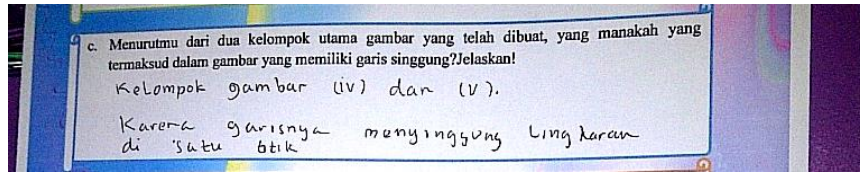 c. Menurutmu dari dua kelompok utama gambar yang telah dibuat, yang manakah yang
termaksud dalam gambar yang memiliki garis singgung?Jelaskan!
Kelompok gambar (iv) dan (v).
Karena garisnya menyinggung Lingkaran
di satu titik